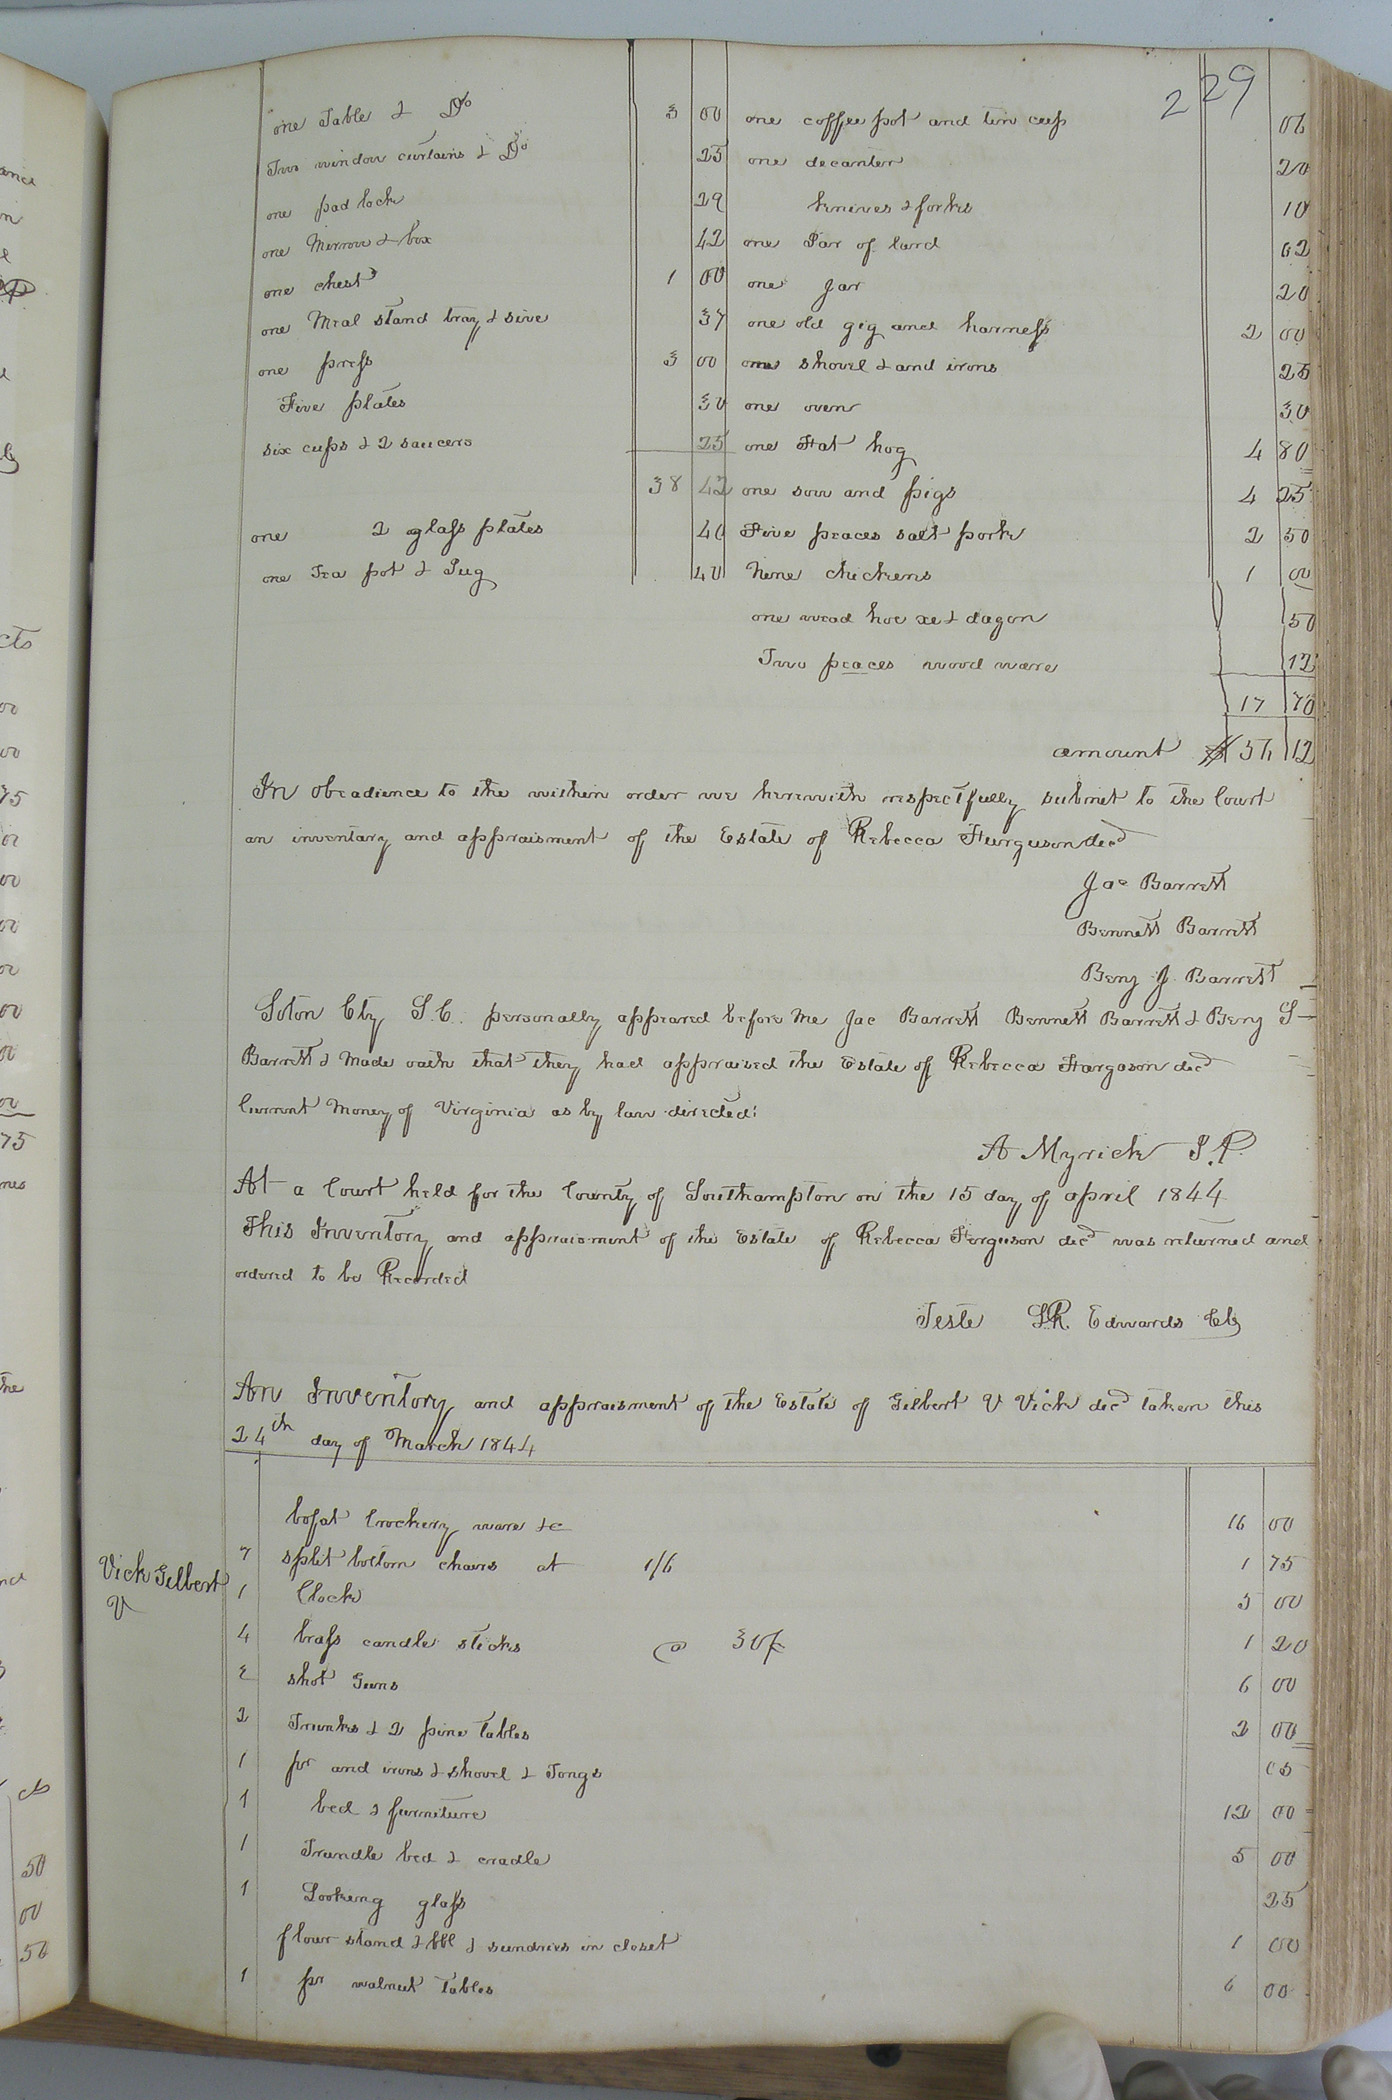 229
one Table & Do 3 00
Two window curtains & Do 25
one pad lock 29
one Mirrow & box 42
one chest 1 00
one Meal stand tray & sive 37
one press 3 00
Five plates 30
six cups & 2 saucers 25
38 42
one 2 glass plates 40
one Tea pot & Jug 40
one coffee pot and tin cup 06
one decanter 20
knives & forks 10
one Jar of lard 62
one Jar 20
one old gig and harness 2 00
one shovel & and irons 25
one oven 30
one Fat hog 4 80
one sow and pigs 4 25
Five peaces salt pork 2 50
Nine chickens 1 00
one wead hoe xe & dagon 50
Two peaces wood ware 12
17 70
amount $ 56 12
In obeadience to the within order we herewith respectfully submit to the Court
an inventary and appraisment of the Estate of Rebecca Furguson decd
Jac Barrett
Bennett Barrett
Benj J. Barrett
Soton Cty S.C. personally appeared before me Jac Barrett Bennett Barrett & Benj S
Barrett & Made oath that they had appraised the Estate of Rebecca Fargason decd
Current Money of Virginia as by law directed:
A Myrick J.P.
At a Court held for the County of Southampton on the 15 day of april 1844
This Inventory and appraisment of the Estate of Rebecca Ferguson decd was returned and
ordered to be Recorded
Teste LR. Edwards Clk
An Inventory and appraisment of the Estate of Gilbert V Vick decd taken this
24th day of March 1844
Bofat Crockery ware &c 16 00
Vick Gilbert
V
7 split bottom chairs at 1/6 1 75
1 Clock 5 00
4 brass candle sticks @ 30c 1 20
2 shot Guns 6 00
2 Trunks & 2 pine tables 2 00
1 pr and irons & shovel & Tongs 05
1 bed & furniture 12 00
1 Trundle bed & cradle 5 00
1 Looking glass 25
flour stand & bbl & sundries in closet 1 00
1 pr walnut Tables 6 00